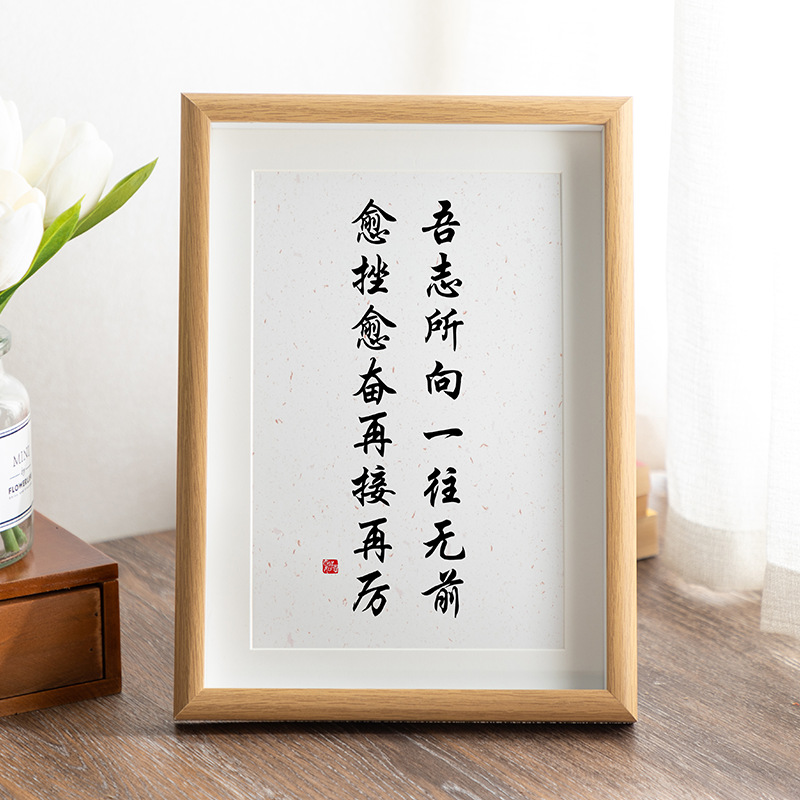 吾志所向一往无前
愈挫愈奋再接再厉
MINI
FLOWER